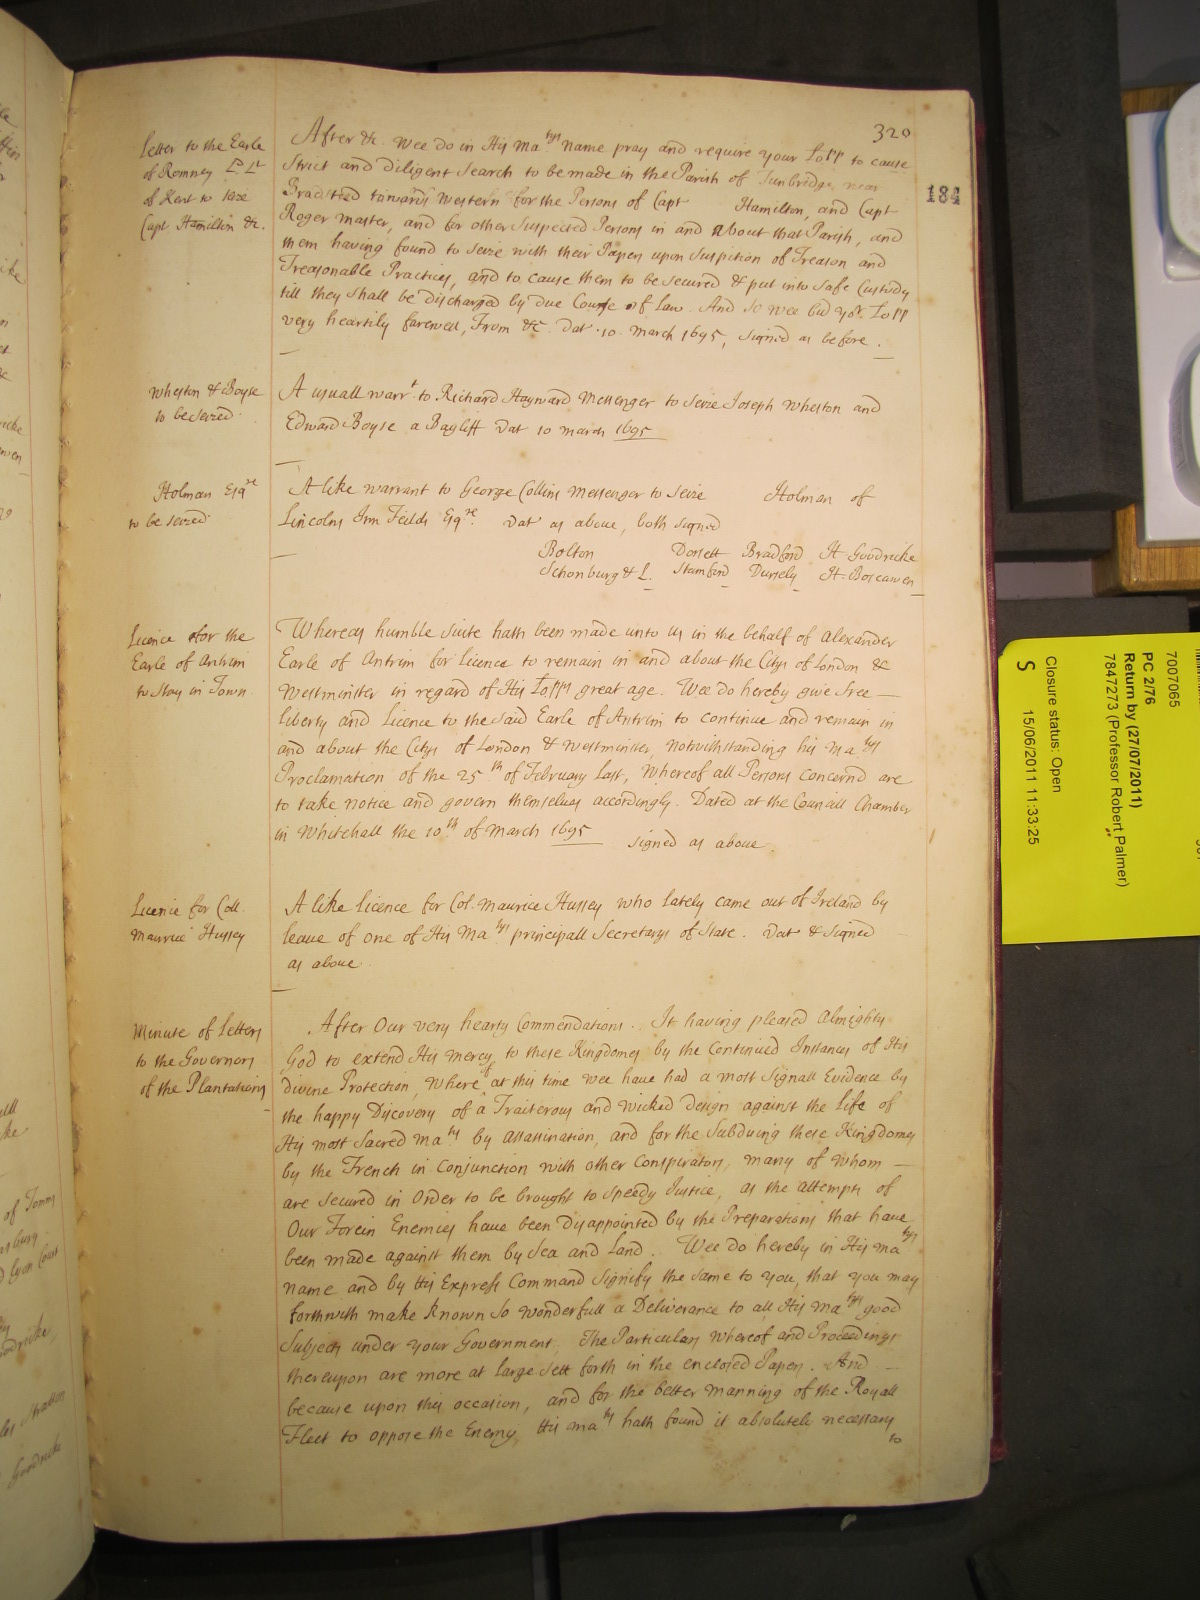 320
184
Letter to the Earle
of Romney Ld Lt
of Kent to seize
Capt. Hamilton &c.
After &c. Wee do in His Ma.tys name pray and require your Lopp to cause
Strict and diligent Search to be made in the Parish of Tunbridge near
Bradsted towards Western for the Persons of Capt Hamilton, and Capt
Roger Master, and for other Suspected Persons in and About that Parish, and
them having found to seize with their Papers upon Suspition of Treason and
Treasonable Practices, and to cause them to be secured & put into safe Custody
till they shall be discharged by due Course of Law. And so wee bid yor. Lopp
very heartily farewel, From &c. Dat. 10. March 1695, Signed as before.
Wheston & Boyse
to be seized
A usuall warrt. to Richard Hayward Messenger to seize Joseph Wheston and
Edward Boyse a Bayliff Dat 10 March 1695
Holman Esqre
to be seized
A like warrant to George Collins Messenger to seize Holman of
Lincolns Inn Feilds Esqre. Dat as above, both signed
Bolton Dorsett Bradford H Goodricke
Schonburg & L. Stamford Dursely H. Boscawen
Licence for the
Earle of Antrim
to stay in Town
Whereas humble Suite hath been made unto Us in the behalf of Alexander
Earle of Antrim for Licence to remain in and about the Citys of London &
Westminster in regard of His Lopps great age. Wee do hereby give free
liberty and Licence to the said Earle of Antrim to continue and remain in
and about the Citys of London & Westminster, notwithstanding his Matys
Proclamation of the 25th of February last, Whereof all Persons concernd are
to take notice and govern themselves accordingly. Dated at the Councill Chamber
in Whitehall the 10th of March 1695 signed as above
Licence for Coll.
Maurice Hussey
A like licence for Col. Maurice Hussey who lately came out of Ireland by
leave of one of His Matys principall Secretarys of State. Dat & signed
as above
Minute of Letters
to the Governors
of the Plantations
After Our very hearty Commendations. It having pleased Almighty
God to extend His mercy to these Kingdomes by the Continued Instances of His
divine Protection, Where of at this time wee have had a most Signall Evidence by
the happy Discovery of a Traiterous and wicked design against the Life of
His most Sacred Maty by Assassination, and for the Subduing these Kingdomes
by the French in Conjunction with other Conspirators, many of whom
are secured in Order to be brought to speedy Justice, as the attempts of
Our Forein Enemies have been Disappointed by the Preparations that have
been made against them by Sea and Land. Wee do hereby in His Matys
name and by His Express Command Signify the same to you, that you may
forthwith make known so wonderfull a Deliverance to all His Matys good
Subjects under your Government. The Particulars whereof and Proceedings
thereupon are more at large Sett forth in the enclosed Papers. And
because upon this occasion, and for the better Manning of the Royall
Fleet to oppose the Enemy, His Maty hath found it absolutely necessary
to
7007065
PC 2/76
Return by (27/07/2011)
7847273 (Professor Robert Palmer)
Closure status: Open
S 15/06/2011 11:33:25